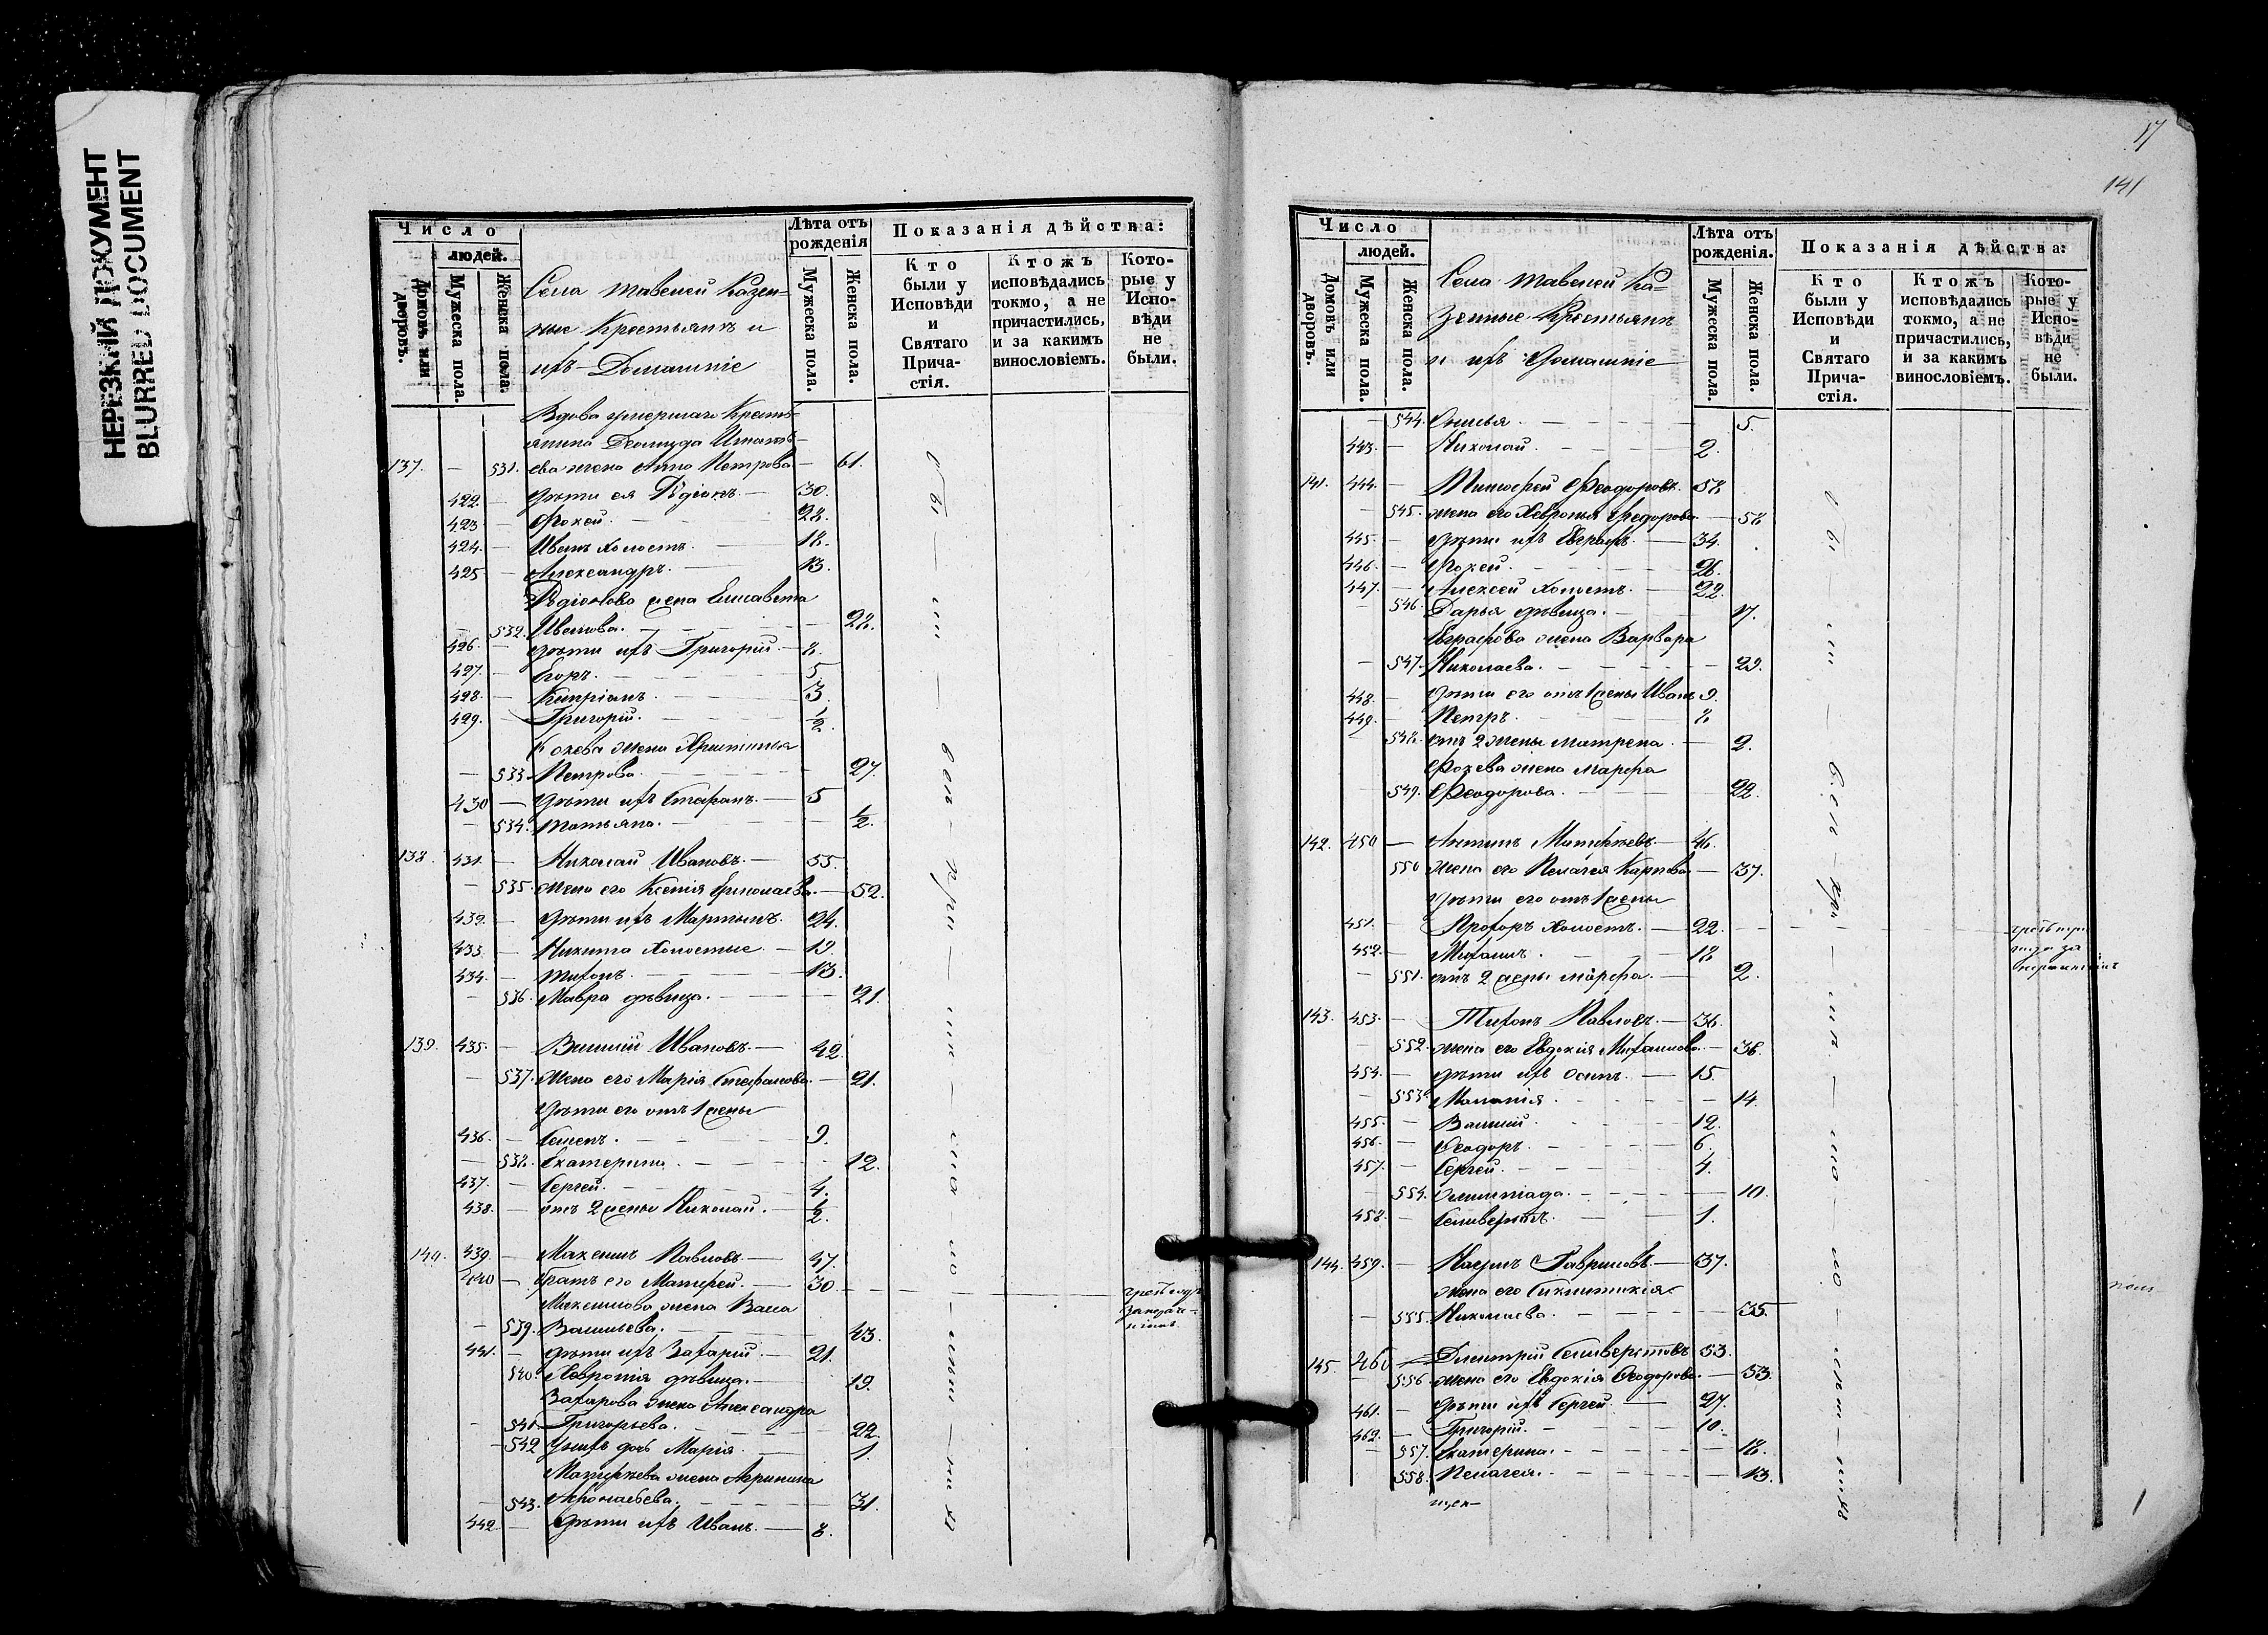 НЕРЕЗКИЙ ДОКУМЕНТ
BLURRED DOCUMENT
Число
людей.
Домовъ или дворовъ.
Мужеска пола.
Женска пола.
Села Казен-
ные Крестьянъ и
ихъ Домашніе
Лѣта отъ рожденія
Мужеска пола.
Женска пола.
Показанія дѣйства:
Кто были у Исповѣди и Святаго Прича-стія.
Ктожъ исповѣдались токмо, а не причастились, и за какимъ винословіемъ.
Кото-рые у Испо-вѣди не были.
Вдова умершаго Кресть-
янина
137. — 531. ева жена Анна Петрова — 61.
422. — дѣти ея Родіонъ. — 30.
423 — Фокей. — 28.
424. — Иванъ холостъ. — 18.
425 — Александръ. — 13.
Родіонова жена Елисавета
— 532. Иванова. — 28.
426. — дѣти ихъ Григорій. — 8.
427. — Егоръ. — 5
428. — Кипріанъ. — 3.
429. — Григорій. — 1/2.
Фокева жена Христинья
— 533. Петрова. — 27.
430 — дѣти ихъ Стефанъ. — 5
— 534. Татьяна. — 1/2.
138. 431. — Николай Ивановъ. — 55.
— 535. жена его Ксенія Ермолаева. — 52.
432. — дѣти ихъ Мартынъ. 24.
433. — Никита холостые — 19.
434. — Тихонъ. — 13.
— 536. Мавра дѣвица. — 21.
139. 435. — Василій Ивановъ. — 42.
— 537. жена его Марія Стефанова. — 21.
дѣти его отъ 1 жены
436. — Семенъ. — 9.
— 538. Екатерина. — 12.
437. — Сергей. — 4.
438. — отъ 2 жены Николай. — 1/2.
140. 439. — Максимъ Павловъ — 47.
440 — братъ его Матфей. — 30
Максимова жена Васса
— 539. Васильева. — 43.
441. — дѣти ихъ Захарій. — 21.
540. Февронія дѣвица. — 19.
Захарова жена Александра
— 541. Григорьева. — 22.
— 542 дочь Марія. — 1.
Матфѣева жена Акулина
— 543. — 31.
442. — дѣти ихъ Иванъ. — 8.
17
141
Число
людей.
Домовъ или дворовъ.
Мужеска пола.
Женска пола.
Села Ка-
зенные Крестьянъ
и ихъ Домашніе
Лѣта отъ рожденія.
Мужеска пола.
Женска пола.
Показанія дѣйства:
Кто были у Исповѣди и Святаго Прича-стія.
Ктожъ исповѣдались токмо, а не причастились, и за какимъ винословіемъ.
Кото-рые у Испо-вѣди не были.
— 544. Анисья. — 5.
443. — Николай. — 2.
141. 444. — Тимофей Феодоровъ. 58
— 545. жена его Хевронья Федорова. — 58
445. — дѣти ихъ Евграфъ. — 34.
446. — Фокей. — 26.
447. — Алексей холостъ. — 22.
— 546. Дарья дѣвица. — 17.
Евграфова жена Варвара
— 547. Николаева. — 29.
448. — дѣти его отъ 1 жены Иванъ 9.
449. — Петръ. — 8
— 548. отъ 2 жены Матрена. — 2.
Фокева жена Марфа
— 549. Феодорова. — 22.
142. 450 — Антипъ Матфѣевъ. — 46.
550 жена его Пелагея Карпова — 37.
дѣти его отъ 1 жены
451. — Прохоръ холостъ. — 22.
452. — Михаилъ. — 18
— 551. отъ 2 жены Марфа. — 2.
143. 453. — Тихонъ Павловъ. — 36.
— 552. жена его Евдокія Михаилова. — 36.
454. — дѣти ихъ Осипъ. — 15.
— 553. Маланія. — 14.
455. — Василій. — 12.
456. — Феодоръ. — 6.
457. — Сергей. — 4.
— 554. Олимпіада. — 10.
458. — Селиверстъ. — 1.
144. 459. — Наумъ Гавриловъ. — 37.
жена его Синклитикія
— 555. Николаева. — 35.
145. 460 — Димитрій Селиверстовъ 53.
— 556. жена его Евдокія Феодорова. — 53.
461. — дѣти ихъ Сергей. — 27.
462. — Григорій. — 10.
— 557. Екатерина. — 18.
558. Пелагея. — 13.